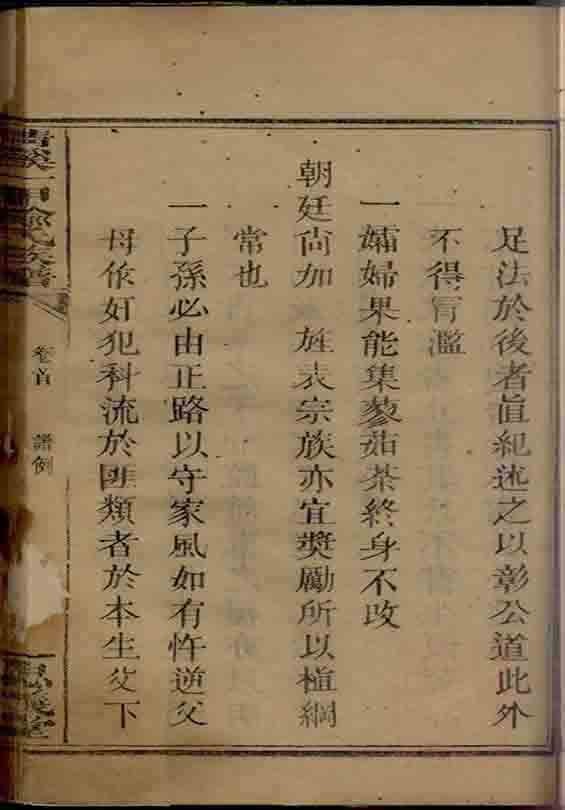 足法於後者直紀述之以彰公道此外
不得冐濫
一孀婦果能集蓼茹荼終身不改
朝廷尚加 旌表宗族亦宜奬勵所以植綱
常也
一子孫必由正路以守家風如有忤逆父
母作奸犯科流於匪類者於本生父下
甲俞氏族譜
卷首 譜例
堂